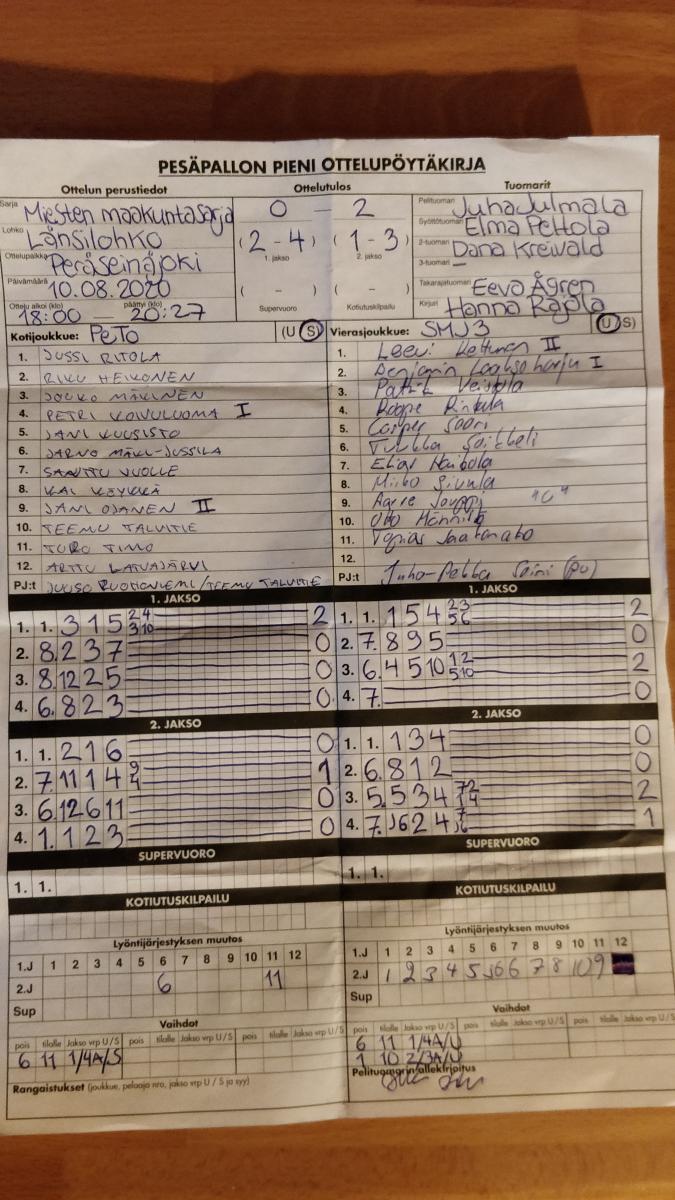 PESÄPALLON PIENI OTTELUPÖYTÄKIRJA
Ottelun perustiedot Ottelutulos Tuomarit
Sarja Miesten maakuntasarja 0 — 2 Pelituomari Juha Julmala
Lohko Länsilohko (2 - 4) (1 - 3) Syöttötuomari Elma Peltola
1. jakso 2. jakso 2-tuomari Dana Kreivald
Ottelupaikka Peräseinäjoki 3-tuomari —
Päivämäärä 10.08.2020 ( - ) ( - ) Takarajatuomari Eeva Ågren
Ottelu alkoi (klo) päättyi (klo) Supervuoro Kotiutuskilpailu Kirjuri Hanna Rajola
18:00 — 20:27
Kotijoukkue: PeTo (U S) Vierasjoukkue: SMJ3 (U S)
1. JUSSI RITOLA 1. Leevi Kettunen II
2. RIKU HEIKONEN 2. Benjamin Laaksoharju I
3. JOUKO MÄKINEN 3. Patrik
4. PETRI KOIVULUOMA I 4. Roope Rintala
5. JANI KUUSISTO 5. Casper Saari
6. JARNO MÄKI-JUSSILA 6. Tuukka
7. SANTTU VUOLLE 7. Elias
8. KAI KÄYKKÄ 8. Miiko Sivula
9. JANI OJANEN II 9. "0"
10. TEEMU TALVITIE 10. Otto Männilä
11. TORO TIMO 11.
12. ARTTU LATVAJÄRVI 12.
PJ:t JUUSO RUOTIONIEMI/TEEMU TALVITIE PJ:t Juha-Pekka Saini (PU)
1. JAKSO 1. JAKSO
1. 1. 3 1 5 2 4 3 10 2 1. 1. 1 5 4 2 3 5 6 2
2. 8. 2 3 7 0 2. 7. 8 9 5 0
3. 8. 12 2 5 0 3. 6. 4 5 10 1 2 5 10 2
4. 6. 8 2 3 0 4. 7. 0
2. JAKSO 2. JAKSO
1. 1. 2 1 6 0 1. 1. 1 3 4 0
2. 7. 11 1 4 9 4 1 2. 6. 8 1 2 0
3. 6. 12 6 11 0 3. 5. 5 3 4 7 2 1 4 2
4. 1. 1 2 3 0 4. 7. J6 2 4 7 J6 1
SUPERVUORO SUPERVUORO
1. 1. 1. 1.
KOTIUTUSKILPAILU KOTIUTUSKILPAILU
Lyöntijärjestyksen muutos Lyöntijärjestyksen muutos
1.J 1 2 3 4 5 6 7 8 9 10 11 12 1.J 1 2 3 4 5 6 7 8 9 10 11 12
2.J 6 11 2.J 1 2 3 4 5 J6 6 7 8 10 9
Sup Sup
Vaihdot Vaihdot
pois tilalle Jakso vrp U/S pois tilalle Jakso vrp U/S pois tilalle Jakso vrp U/S pois tilalle Jakso vrp U/S pois tilalle Jakso vrp U/S
6 11 1/4A/S 6 11 1/4A/U
1 10 2/3A/U
Rangaistukset (joukkue, pelaaja nro, jakso vrp U / S ja syy) Pelituomarin allekirjoitus